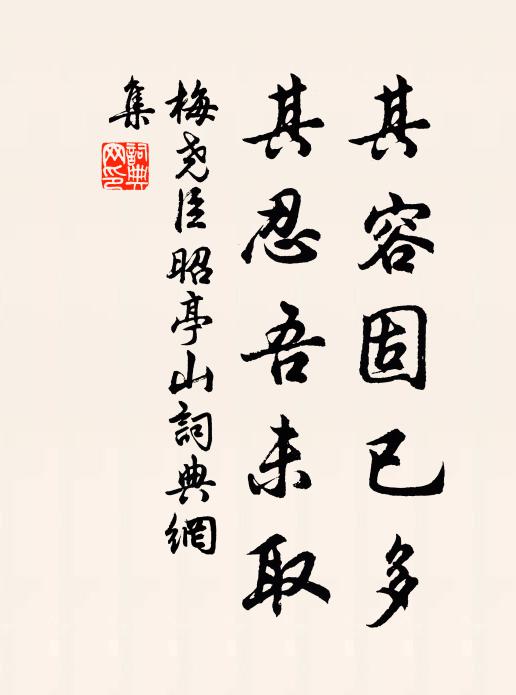 其容固已多
其忍吾未取
梅尧臣昭亭山詞典網
集
詞典
网印